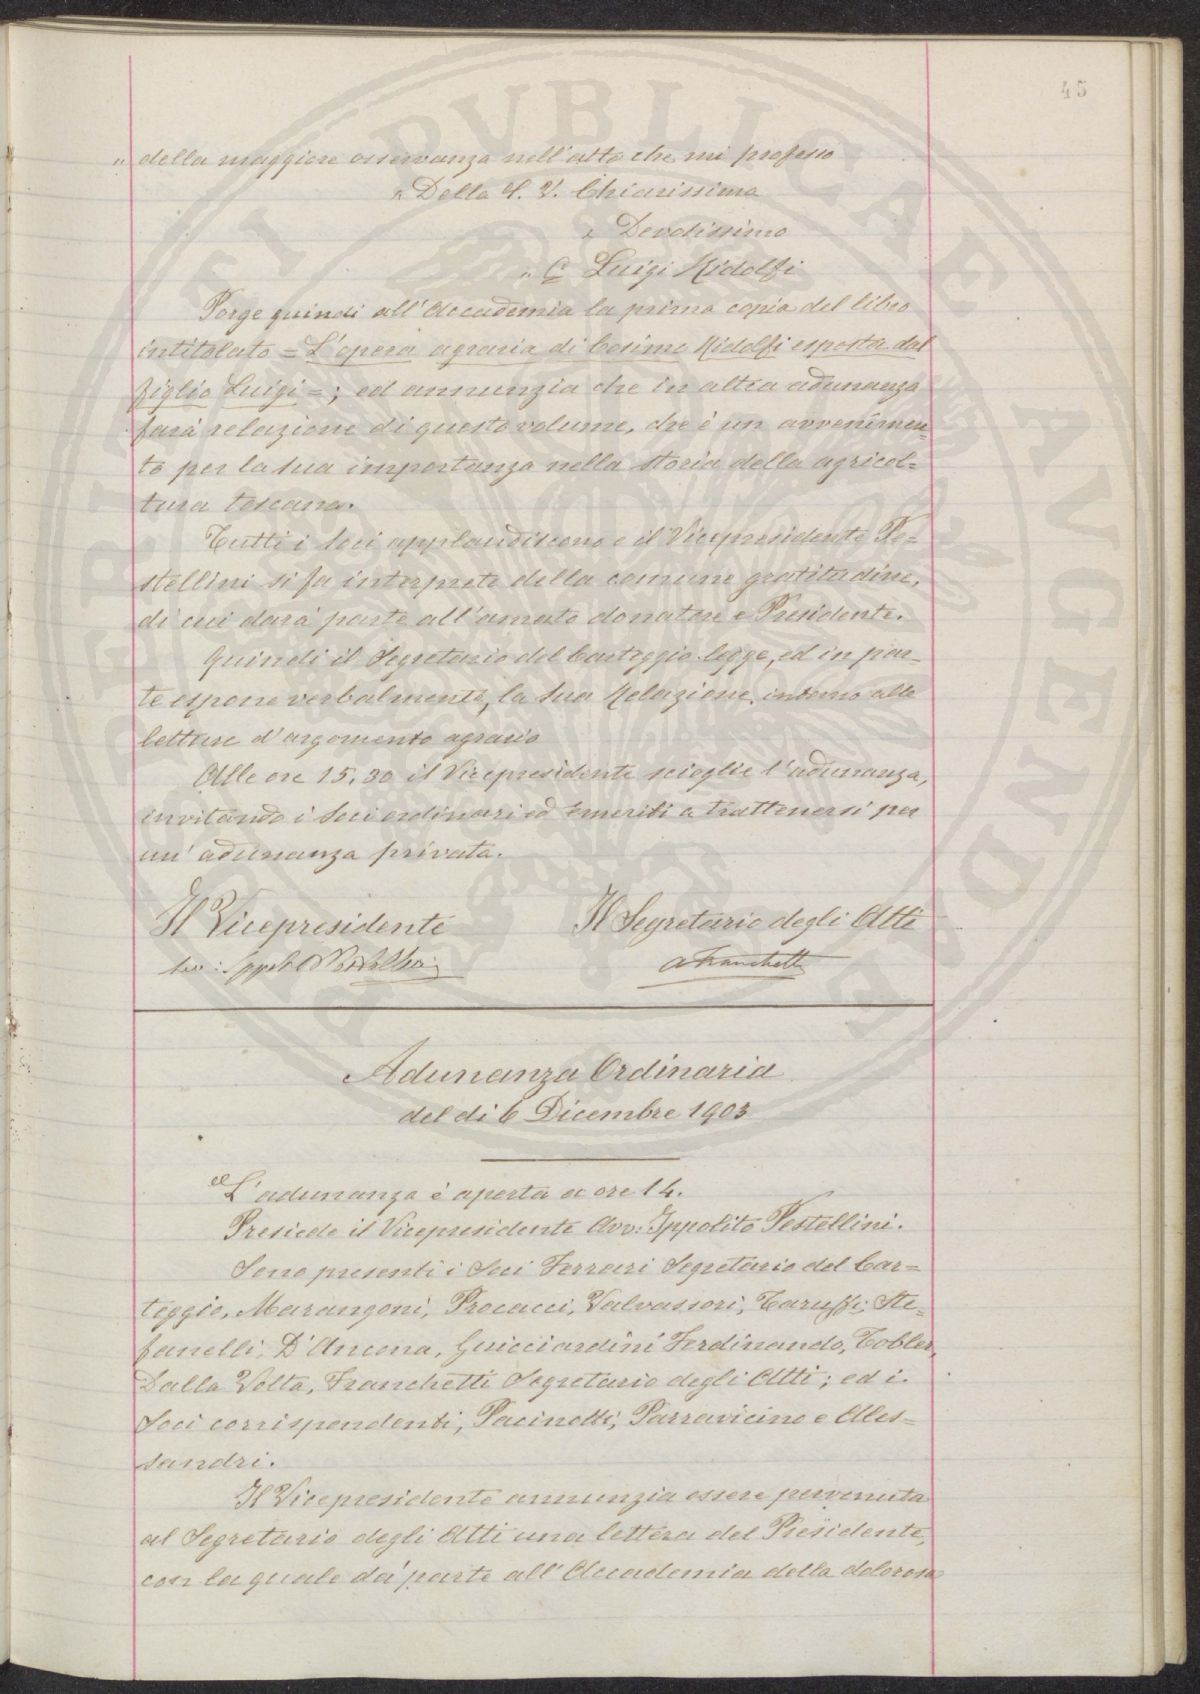 45
„ della maggiore osservanza nell'atto che mi professo
„ Della S. V. Chiarissima
„ Devotissimo
„ C.e Luigi Ridolfi
Porge quindi all'Accademia la prima copia del libro
intitolato = L'opera agraria di Cosimo Ridolfi esposta dal
figlio Luigi = ; ed annunzia che in altra adunanza
farà relazione di questo volume, che è un avvenimen-
to per la sua importanza nella storia della agricol=
tura toscana.
Tutti i Soci applaudiscono e il Vicepresidente Pe=
stellini si fa interprete della comune gratitudine,
di cui darà parte all'amato donatore e Presidente.
Quindi il Segretario del Carteggio legge, ed in par-
te espone verbalmente, la sua Relazione intorno alle
letture d'argomento agrario
Alle ore 15,30 il Vicepresidente scioglie l'adunanza,
invitando i Soci ordinari ed Emeriti a trattenersi per
un'adunanza privata.
Il Vicepresidente
Il Segretario degli Atti
Avv: Ippolito Pestellini
A Franchetti
Adunanza Ordinaria
del dì 6 Dicembre 1903
L'adunanza è aperta a ore 14.
Presiede il Vicepresidente Avv: Ippolito Pestellini.
Sono presenti i Soci Ferrari Segretario del Car=
teggio, Marangoni, Procacci, Valvassori, Taruffi, Ste=
fanelli, D'Ancona, Guicciardini Ferdinando, Tobler,
Dalla Volta, Franchetti Segretario degli Atti; ed i
Soci corrispondenti, Pacinotti, Parravicino e Ales=
sandri.
Il Vicepresidente annunzia essere pervenuta
al Segretario degli Atti una lettera del Presidente,
con la quale dà parte all'Accademia della dolorosa
PVBLICAE AVGENDAE